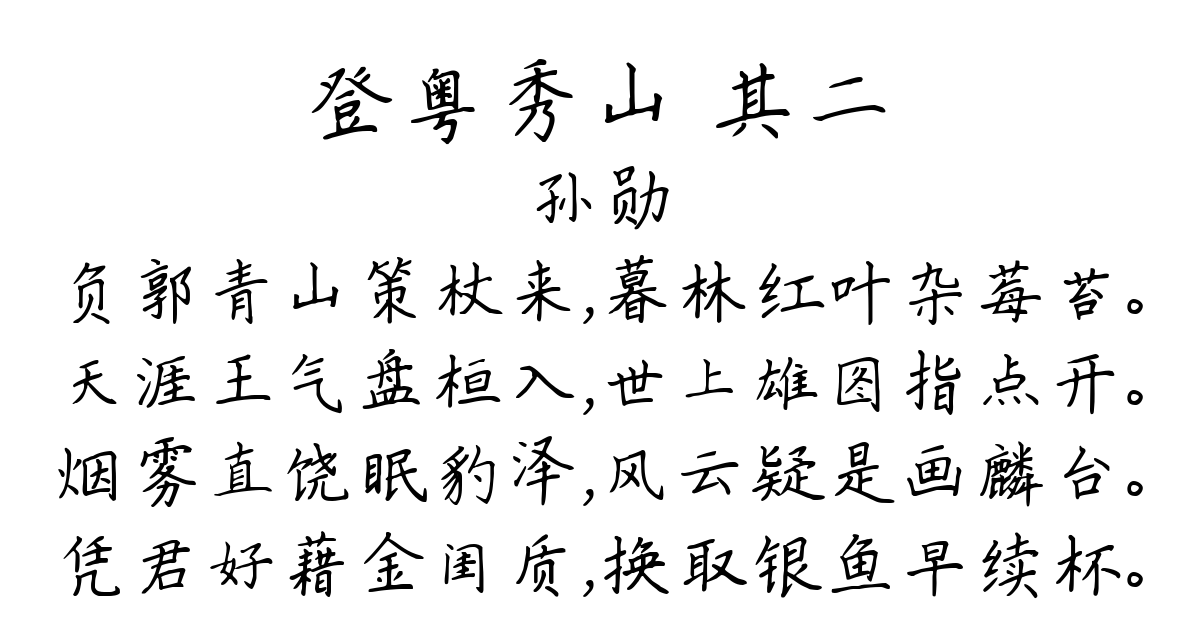 登粤秀山 其二
孙勋
负郭青山策杖来,暮林红叶杂莓苔。
天涯王气盘桓入,世上雄图指点开。
烟雾直饶眠豹泽,风云疑是画麟台。
凭君好藉金闺质,换取银鱼早续杯。